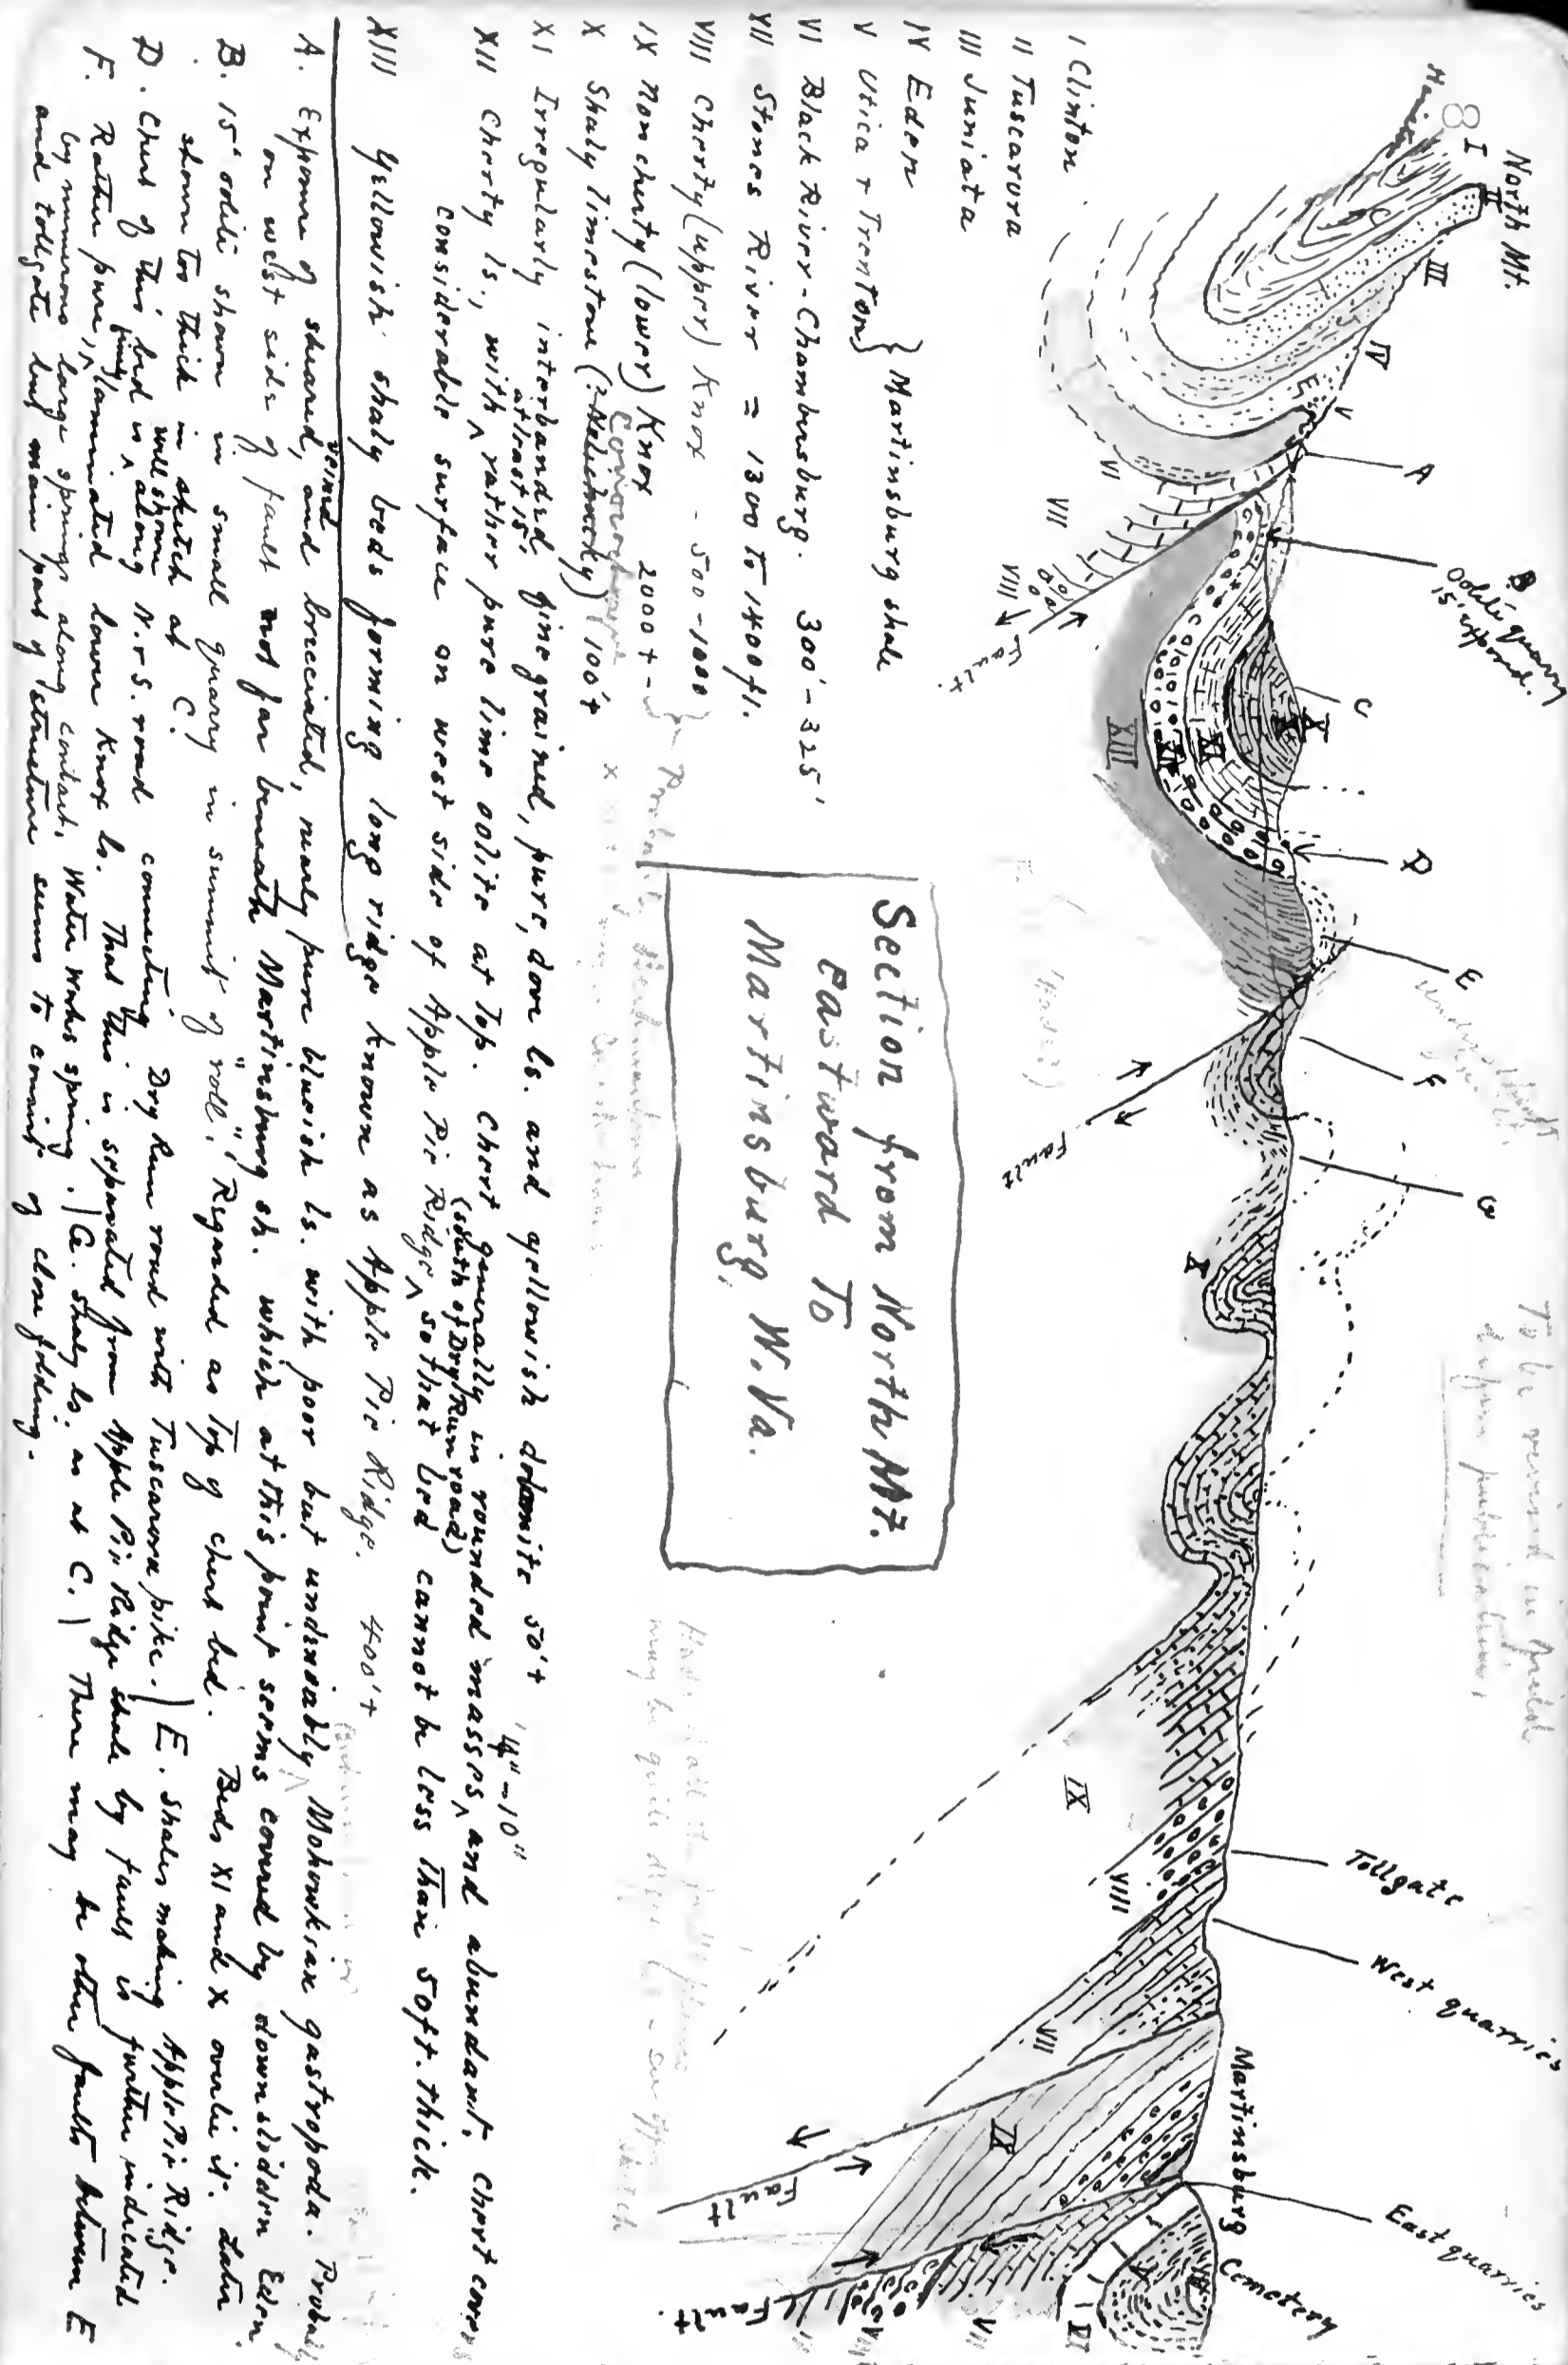 8
North Mt.
I
II
III
IV
V
VI
VII
VIII
Fault
A
B
Oolite quarry
15' exposed.
C
X
XI
XII
XIII
D
E
F
Fault
G
X
IX
Tollgate
VIII
West quarries
VII
Martinsburg
Fault
IX
East quarries
Cemetery
V
VI
VII
VIII
Fault.
To be revised in field
before publication.
I Clinton
II Tuscarora
III Juniata
IV Eden
V Utica & Trenton } Martinsburg shale
VI Black River-Chambersburg. 300'-325'
VII Stones River = 1300 to 1400 ft.
VIII Cherty (upper) Knox - 500-1000
IX Noncherty (lower) Knox 2000 + -
X Shaly limestone 100'+
XI Irregularly interbanded, fine grained, pure, dove ls. and yellowish dolomite 50'+
XII Cherty ls., with ^ at least 15' rather pure lime oolite at top. Chert generally in rounded masses, ^ 4"-10" and abundant. Chert covers
considerable surface on west side of Apple Pie Ridge ^ (south of Dry Run road) so that bed cannot be less than 50ft. thick.
XIII Yellowish shaly beds forming long ridge known as Apple Pie Ridge. 400'+
Section from North Mt.
Eastward To
Martinsburg, W. Va.
A. Exposure of sheared, veined and brecciated, nearly pure bluish ls. with poor but undeniably Mohawkian gastropoda. Probably
on west side of fault not far beneath Martinsburg sh. which at this point seems covered by down slidden Eden.
B. 15' oolite shown in small quarry in summit of "roll". Regarded as Top of chert bed. Beds XI and X overlie it. Later
shown too thick in sketch at C.
D. Chert of this bed is ^ well shown along N. & S. road connecting Dry Run road with Tuscarora pike.) E. Shales making Apple Pie Ridge.
F. Rather pure, ^ finely laminated lower Knox ls. That this is separated from Apple Pie Ridge shale by fault is further indicated
by numerous large springs along contact. Water works spring.) G. Shaly ls. as at C.) There may be other faults between E
and tollgate but main part of structure seems to consist of close folding.